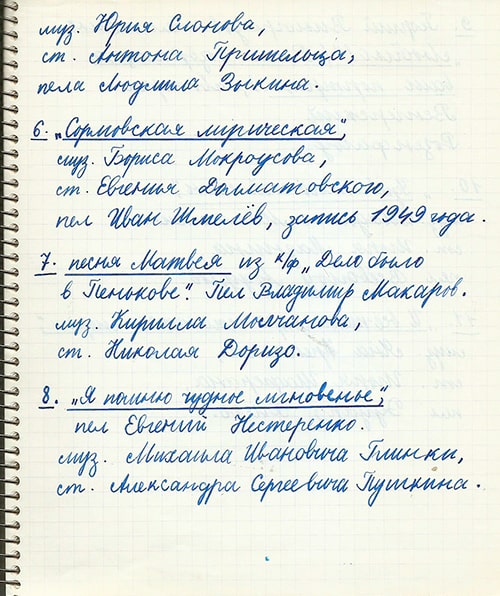 муз. Юрия Слонова,
ст. Антона Пришельца,
пела Людмила Зыкина.
6. „Сормовская лирическая",
муз. Бориса Мокроусова,
ст. Евгения Долматовского,
пел Иван Шмелёв, запись 1949 года.
7. песня Матвея из к/ф „Дело было
в Пенькове". Пел Владимир Макаров.
муз. Кирилла Молчанова,
ст. Николая Доризо.
8. „Я помню чудное мгновенье",
пел Евгений Нестеренко.
муз. Михаила Ивановича Глинки,
ст. Александра Сергеевича Пушкина.